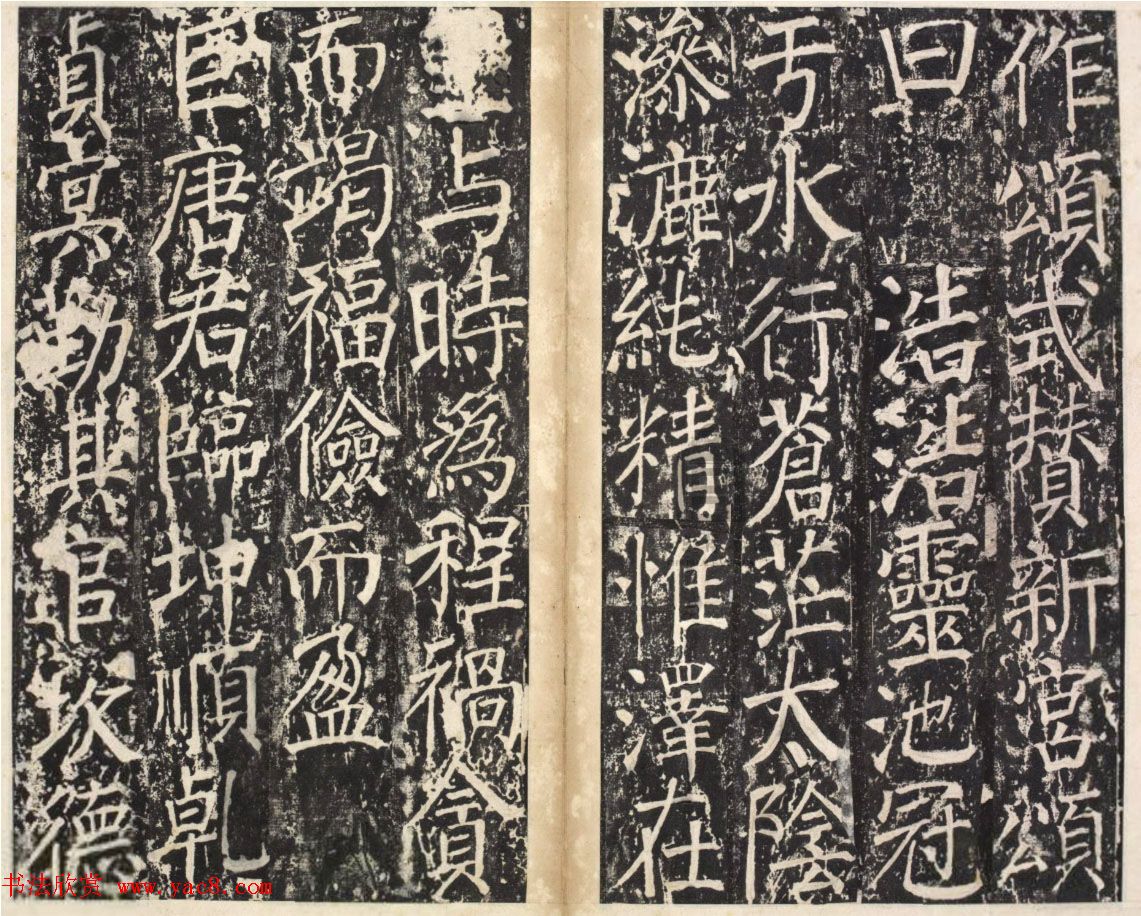 作頌式賛新宮頌
曰 浩浩靈池冠
于水行蒼茫太陰
滲漉純精惟澤在
与時為程禍貪
而竭福儉而盈
巨唐君臨坤順乹
貞冥勤其官坎德
书法欣赏 www.yac8.com